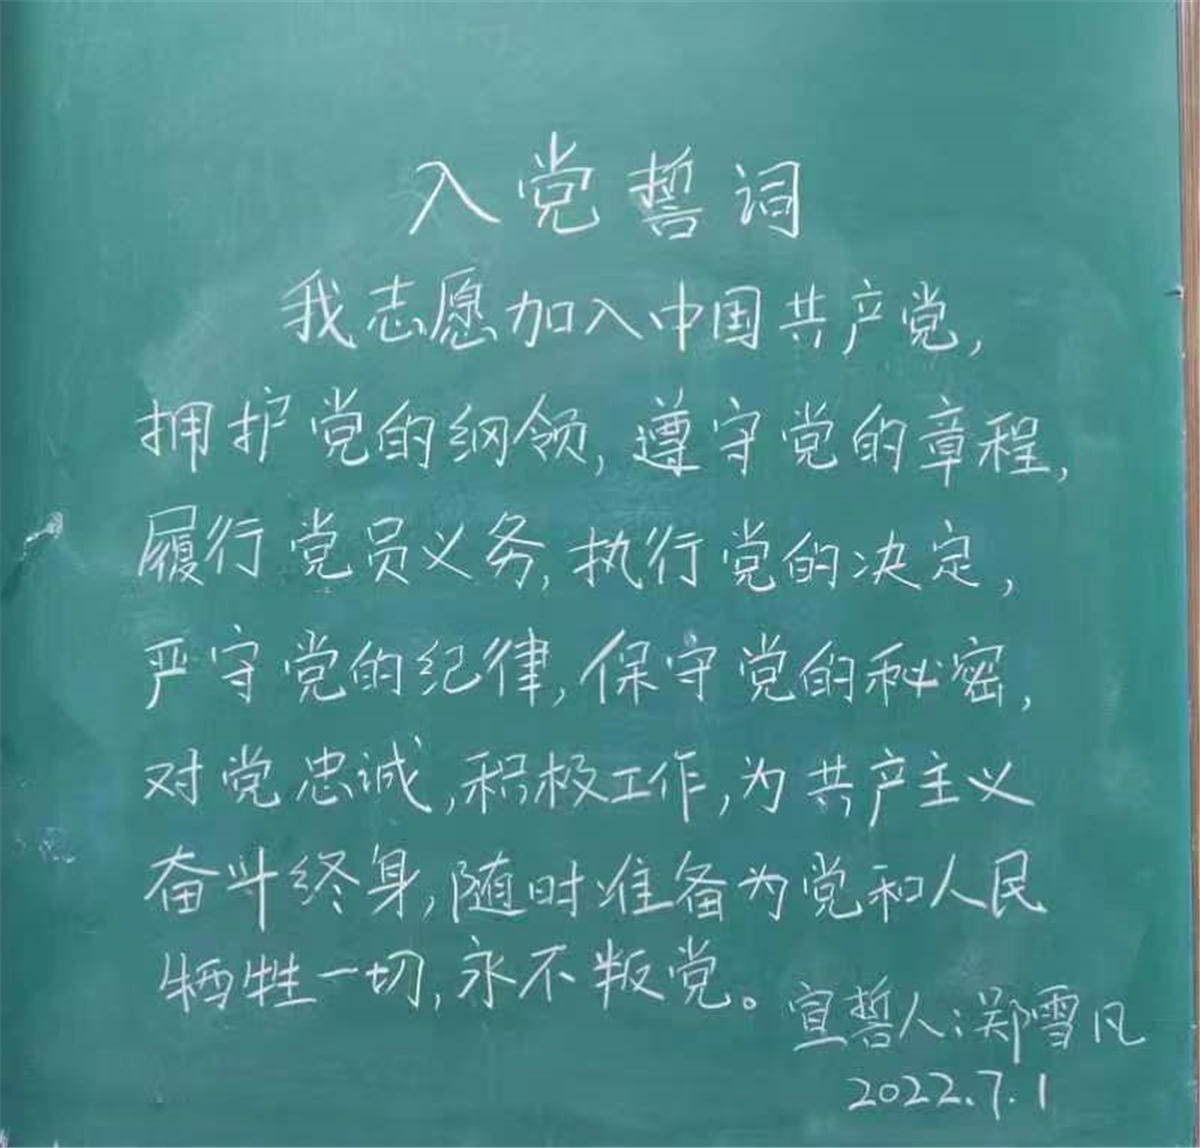 入党誓词
我志愿加入中国共产党,
拥护党的纲领,遵守党的章程,
履行党员义务,执行党的决定,
严守党的纪律,保守党的秘密,
对党忠诚,积极工作,为共产主义
奋斗终身,随时准备为党和人民
牺牲一切,永不叛党。
宣誓人:郑雪凡
2022.7.1